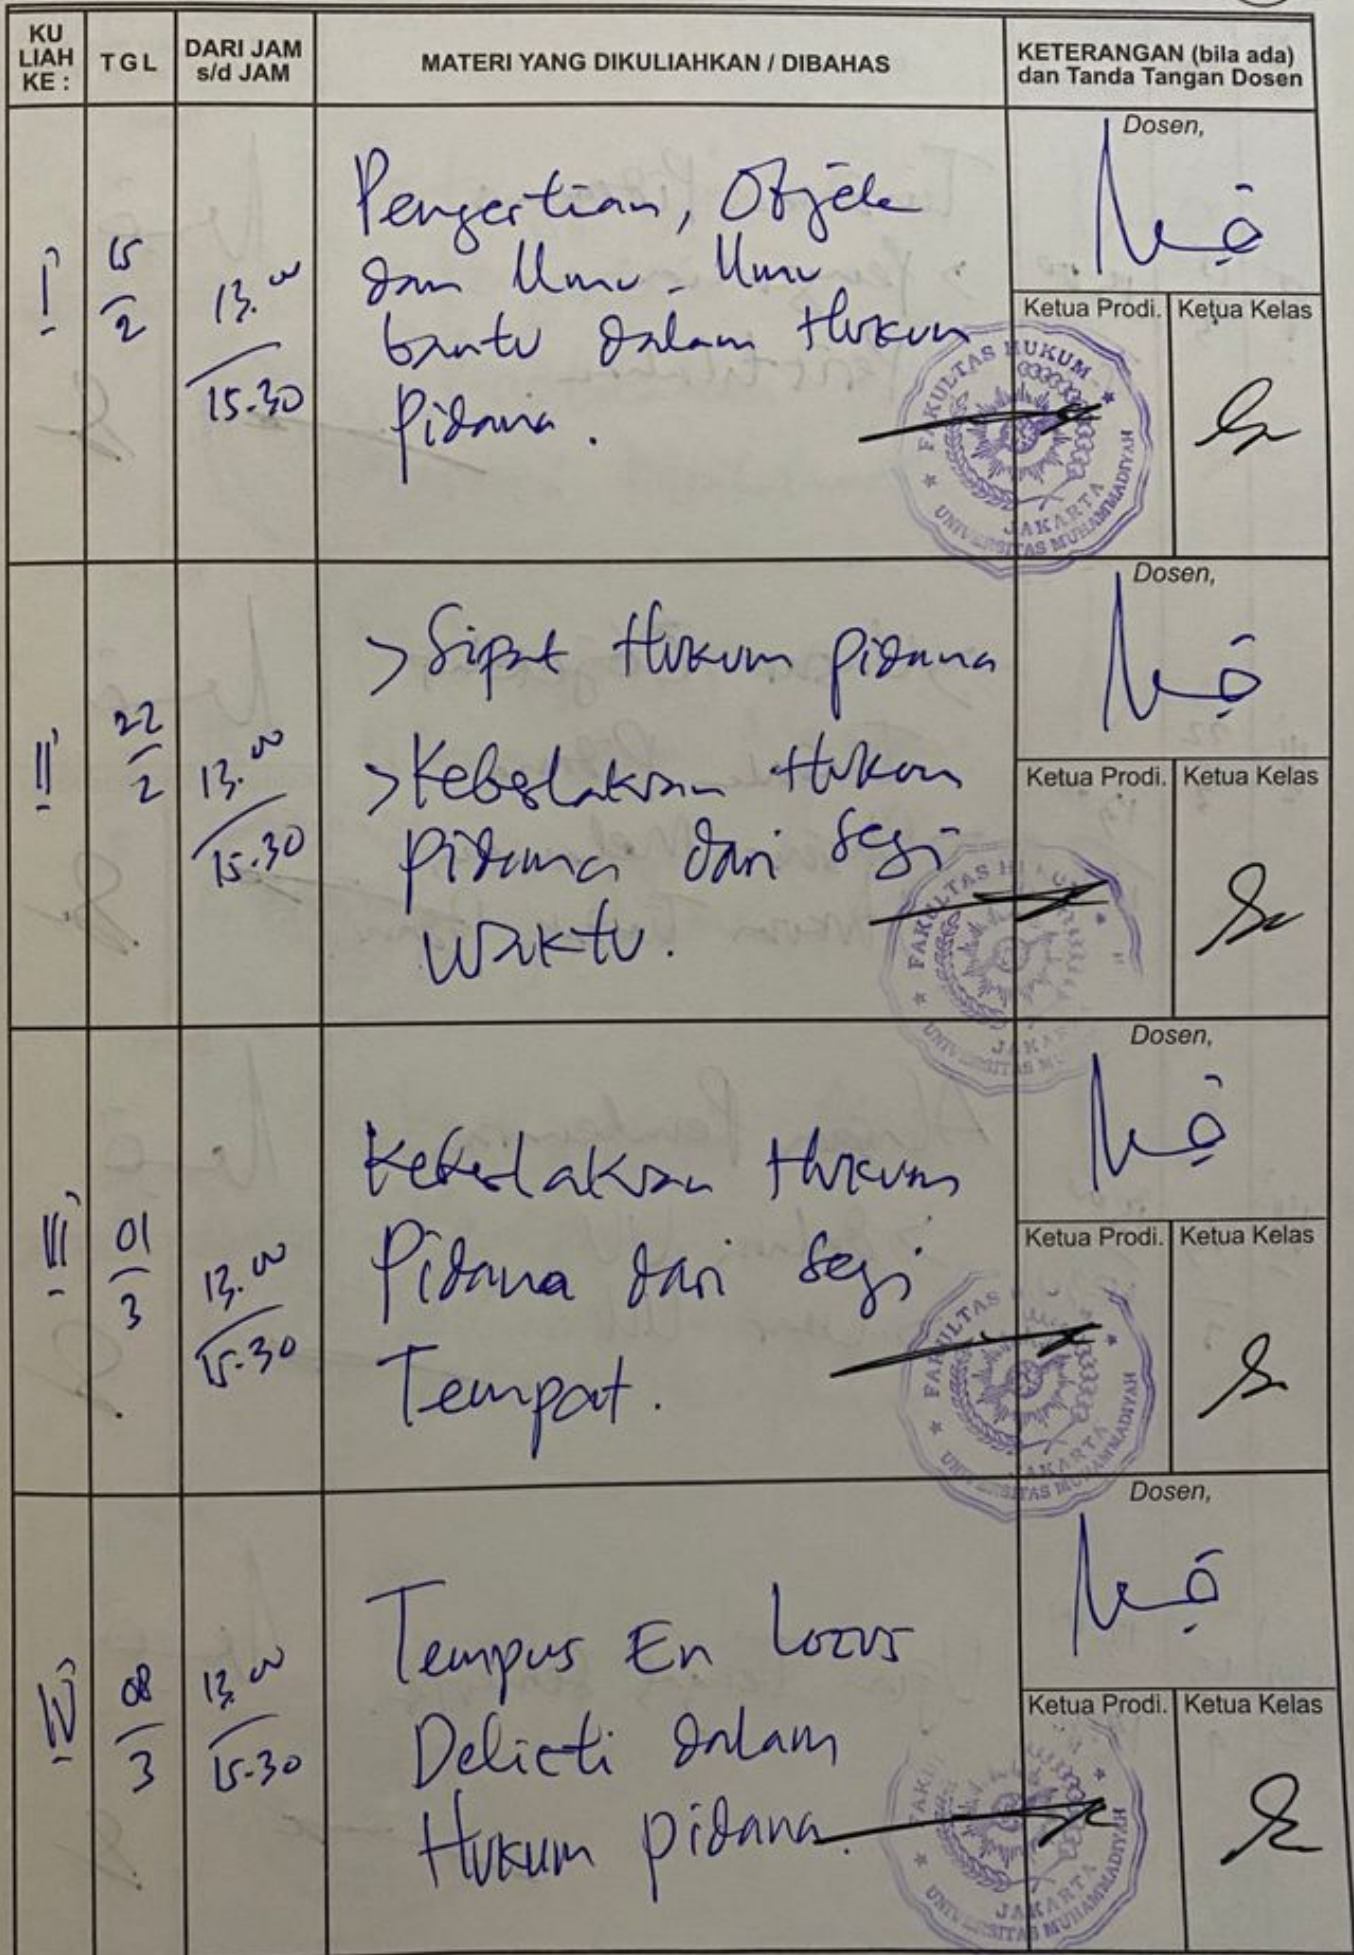 KU
LIAH
KE :
TGL
DARI JAM
s/d JAM
MATERI YANG DIKULIAHKAN / DIBAHAS
KETERANGAN (bila ada)
dan Tanda Tangan Dosen
I
15
2
13.00
15.30
Pengertian, Objek
dan Ilmu-Ilmu
bantu dalam Hukum
Pidana.
Dosen,
Ketua Prodi.
Ketua Kelas
FAKULTAS HUKUM
UNIVERSITAS MUHAMMADIYAH
JAKARTA
II
22
2
13.00
15.30
> Sipat Hukum pidana
> Keberlakuan Hukum
pidana dari segi
waktu.
Dosen,
Ketua Prodi.
Ketua Kelas
III
01
3
13.00
15.30
Keberlakuan Hukum
Pidana dari segi
Tempat.
Dosen,
Ketua Prodi.
Ketua Kelas
FAKULTAS
UNIVERSITAS MUHAMMADIYAH
JAKARTA
IV
08
3
13.00
15.30
Tempus En Locus
Delicti dalam
Hukum pidana.
Dosen,
Ketua Prodi.
Ketua Kelas
UNIVERSITAS MUHAMMADIYAH
JAKARTA